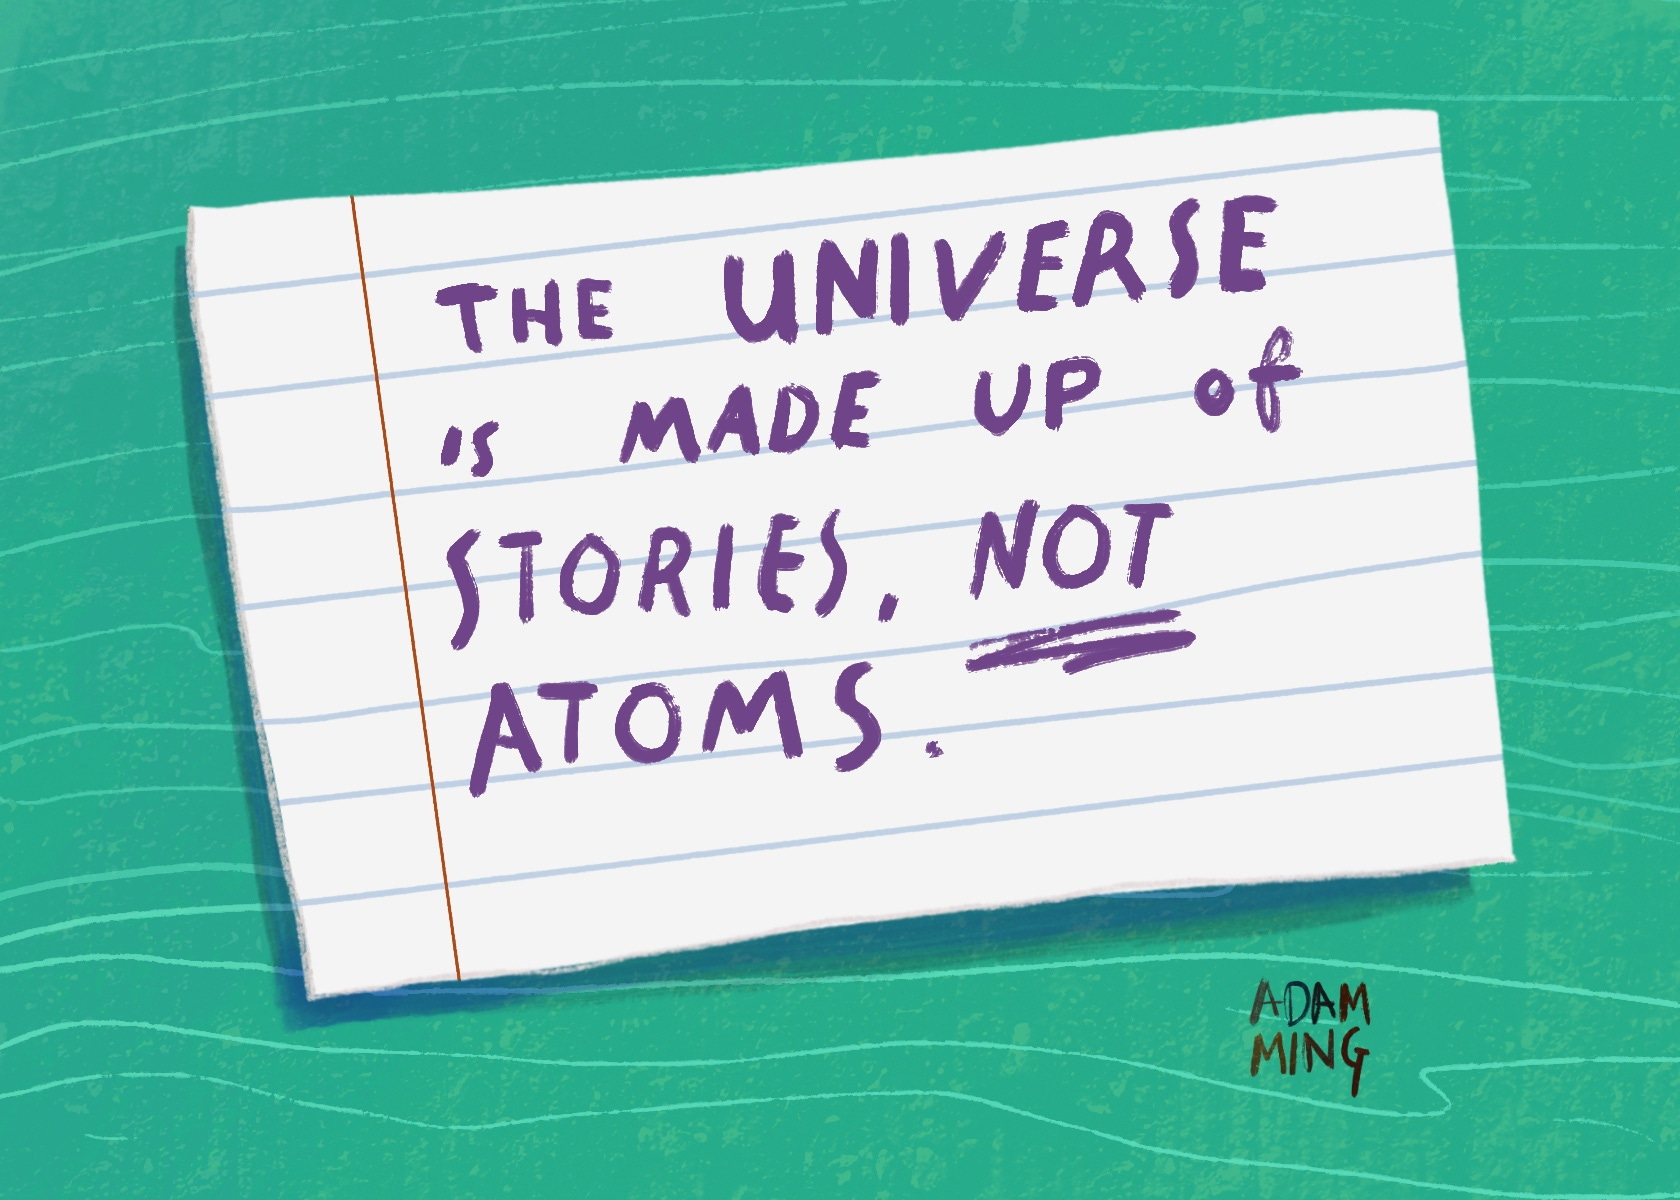 THE UNIVERSE
IS MADE UP of
STORIES, NOT
ATOMS.
ADAM
MING